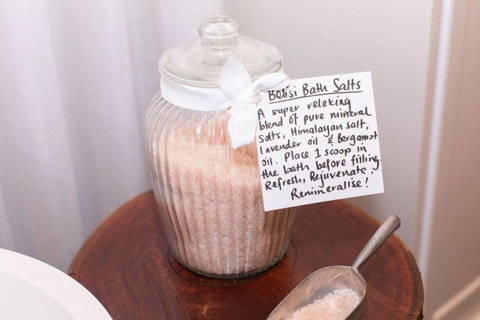 Bolisi Bath Salts
A super relaxing
blend of pure mineral
salts, Himalayan salt,
lavender oil & Bergamot
oil. Place 1 scoop in
the bath before filling.
Refresh, Rejuvenate,
Remineralise!